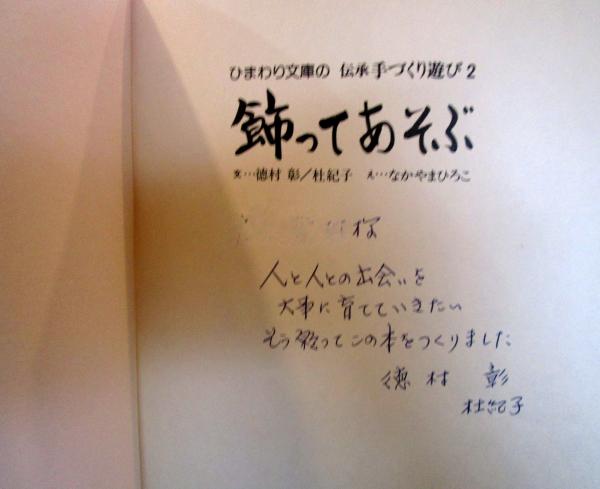 ひまわり文庫の 伝承手づくり遊び2
飾ってあそぶ
文…徳村 彰/杜紀子 え…なかやまひろこ
様
人と人との出会いを
大事に育てていきたい
そう祈ってこの本をつくりました
徳村 彰
杜紀子